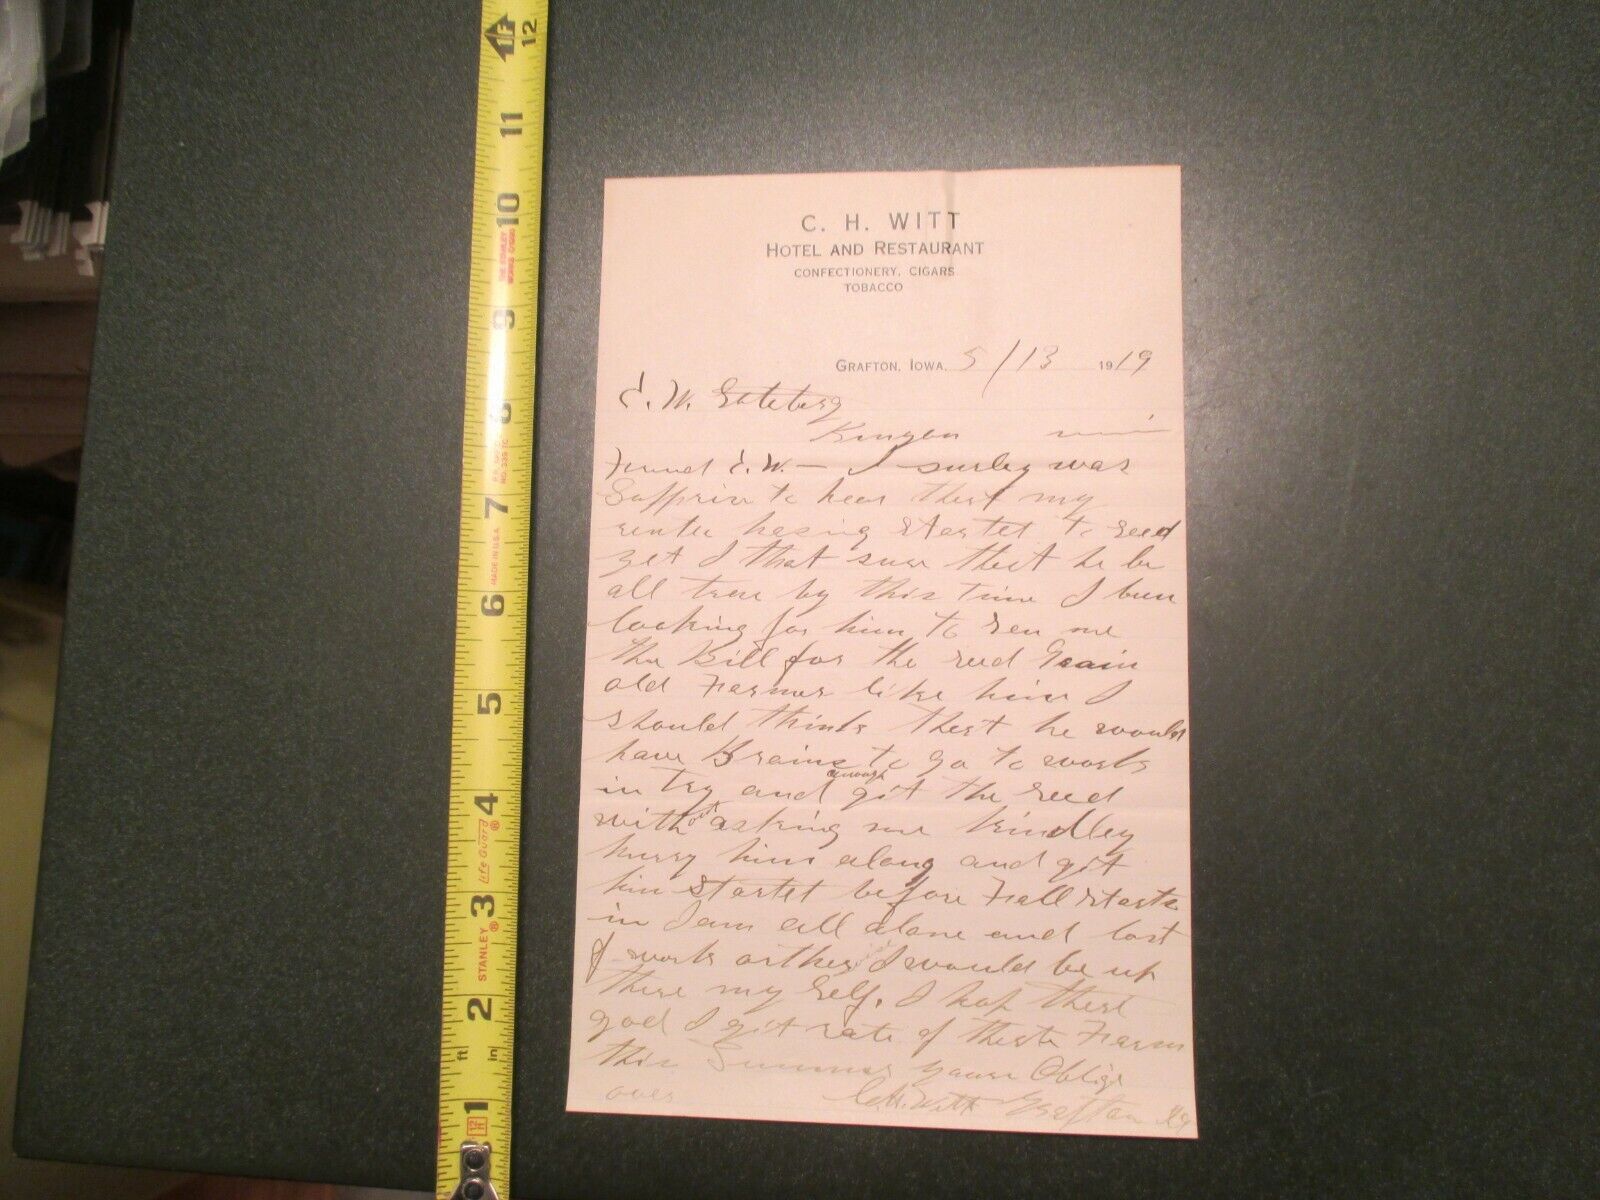 C. H. WITT
HOTEL AND RESTAURANT
CONFECTIONERY, CIGARS
TOBACCO
GRAFTON, IOWA, 5/13 1919
E. W.
Friend E. W. — I surley was
Supprise to hear thest my
renter hasing startet to seed
yet I that sure thest he be
all tru by this time I bun
looking for him to sen me
the Bill for the seed Grain
old Farmer like him I
should think thest he would
have Brains enough to go to work
in try and git the seed
without asking me kindley
hurry him along and git
him startet before Fall starts
in I am all alone and lost
of work orther I would be up
there my self. I hop thest
god I git rate of thest Farm
this Summer youre Oblige
over C.H. Witt Grafton Ia
12
11
10
9
8
7
6
5
4
3
2
1
ft
in
MADE IN U.S.A.
STANLEY®
Life Guard®
12 ft